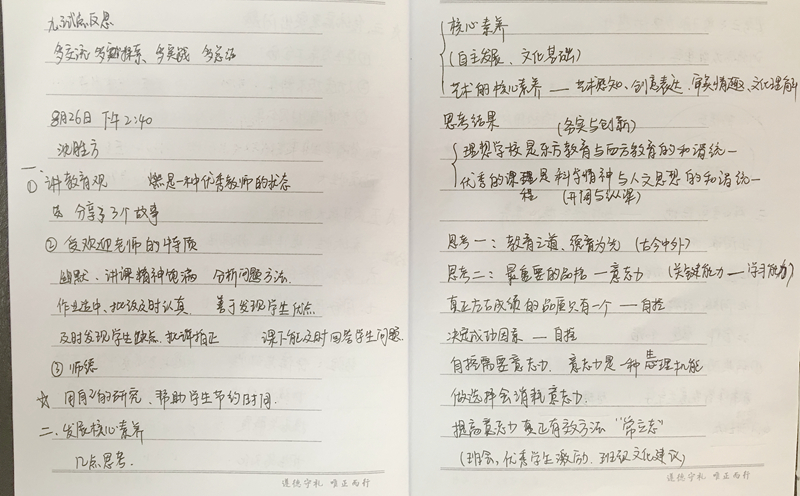 考试后反思
多交流 多探索、多实战 多总结
8月26日 下午2:40
沈胜方
一、
① 讲教育观 燃是一种优秀教师的状态
分享了3个故事
② 受欢迎老师的特质
幽默、讲课精神饱满 分析问题方法
作业适中、批改及时认真、 善于发现学生优点
及时发现学生缺点、批评指正 课下能及时回答学生问题.
③ 师德
☆ 用自己的研究、帮助学生节约时间.
二、发展核心素养
几点思考.
道德守礼 唯正而行
核心素养
(自主发展、文化基础)
艺术的核心素养 — 艺术感知、创意表达、审美情趣、文化理解
思考结果 (务实与创新)
理想学校是东方教育与西方教育的和谐统一
优秀的课程是科学精神与人文思想的和谐统一
程 (开阔与纵深)
思考一：教育之道、德育为先 (古今中外)
思考二：最重要的品格 — 意志力 (关键能力 — 学习能力)
真正左右成绩的品质只有一个 — 自控
决定成功因素 — 自控
自控需要意志力、 意志力是一种生理机能
做选择会消耗意志力.
提高意志力真正有效方法 "常立志"
(班会、优秀学生激励、班级文化建设)
道德守礼 唯正而行